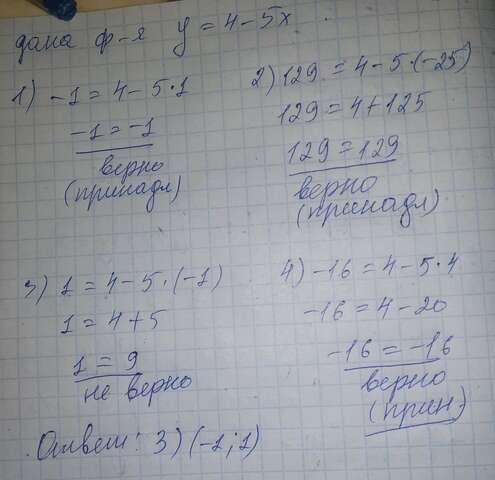 дана ф-я y = 4 - 5x
1) -1 = 4 - 5·1
-1 = -1
верно
(принадл)
2) 129 = 4 - 5·(-25)
129 = 4 + 125
129 = 129
верно
(принадл)
3) 1 = 4 - 5·(-1)
1 = 4 + 5
1 = 9
не верно
4) -16 = 4 - 5·4
-16 = 4 - 20
-16 = -16
верно
(прин)
Ответ: 3) (-1; 1)